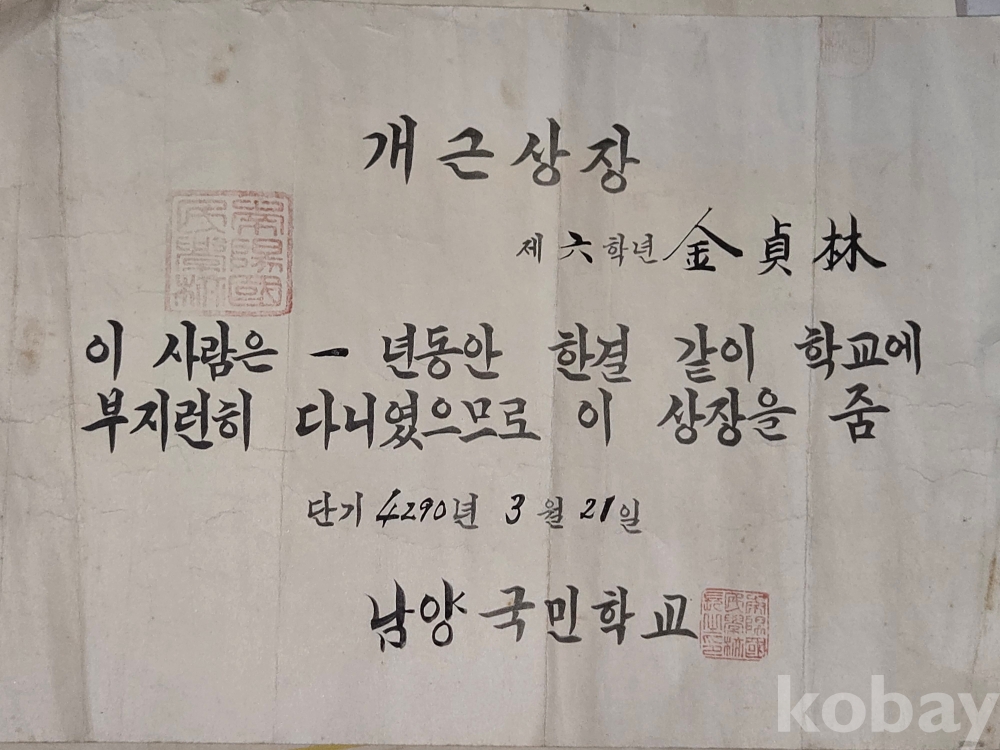 개근상장
제 六 학년 金貞林
이 사람은 一 년동안 한결 같이 학교에
부지런히 다니였으므로 이 상장을 줌
단기 4290년 3월 21일
남양국민학교
kobay